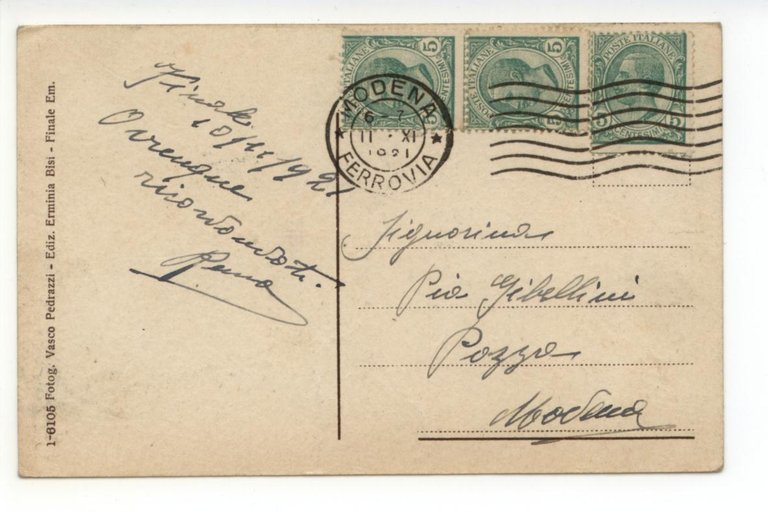 1-6105 Fotog. Vasco Pedrazzi - Ediz. Erminia Bisi - Finale Em.
Finale
10/11/1921
Ovunque
ricordandoti.
POSTE ITALIANE
CENTESIMI
5
POSTE ITALIANE
CENTESIMI
5 5
POSTE ITALIANE
5 5
CENTESIMI
MODENA
6-7
11 - XI
1921
FERROVIA
Signorina
Pia Gibellini
Pozza
Modena